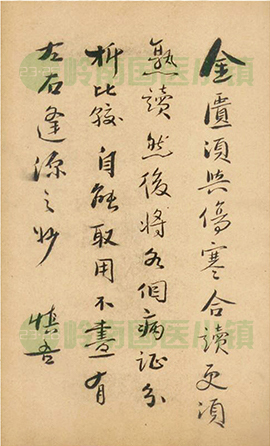 金匱須與傷寒合讀更須
熟讀然後將各個病証分
析比較自能取用不盡有
左右逢源之妙 慎吾
岭南国医小镇
岭南国医小镇